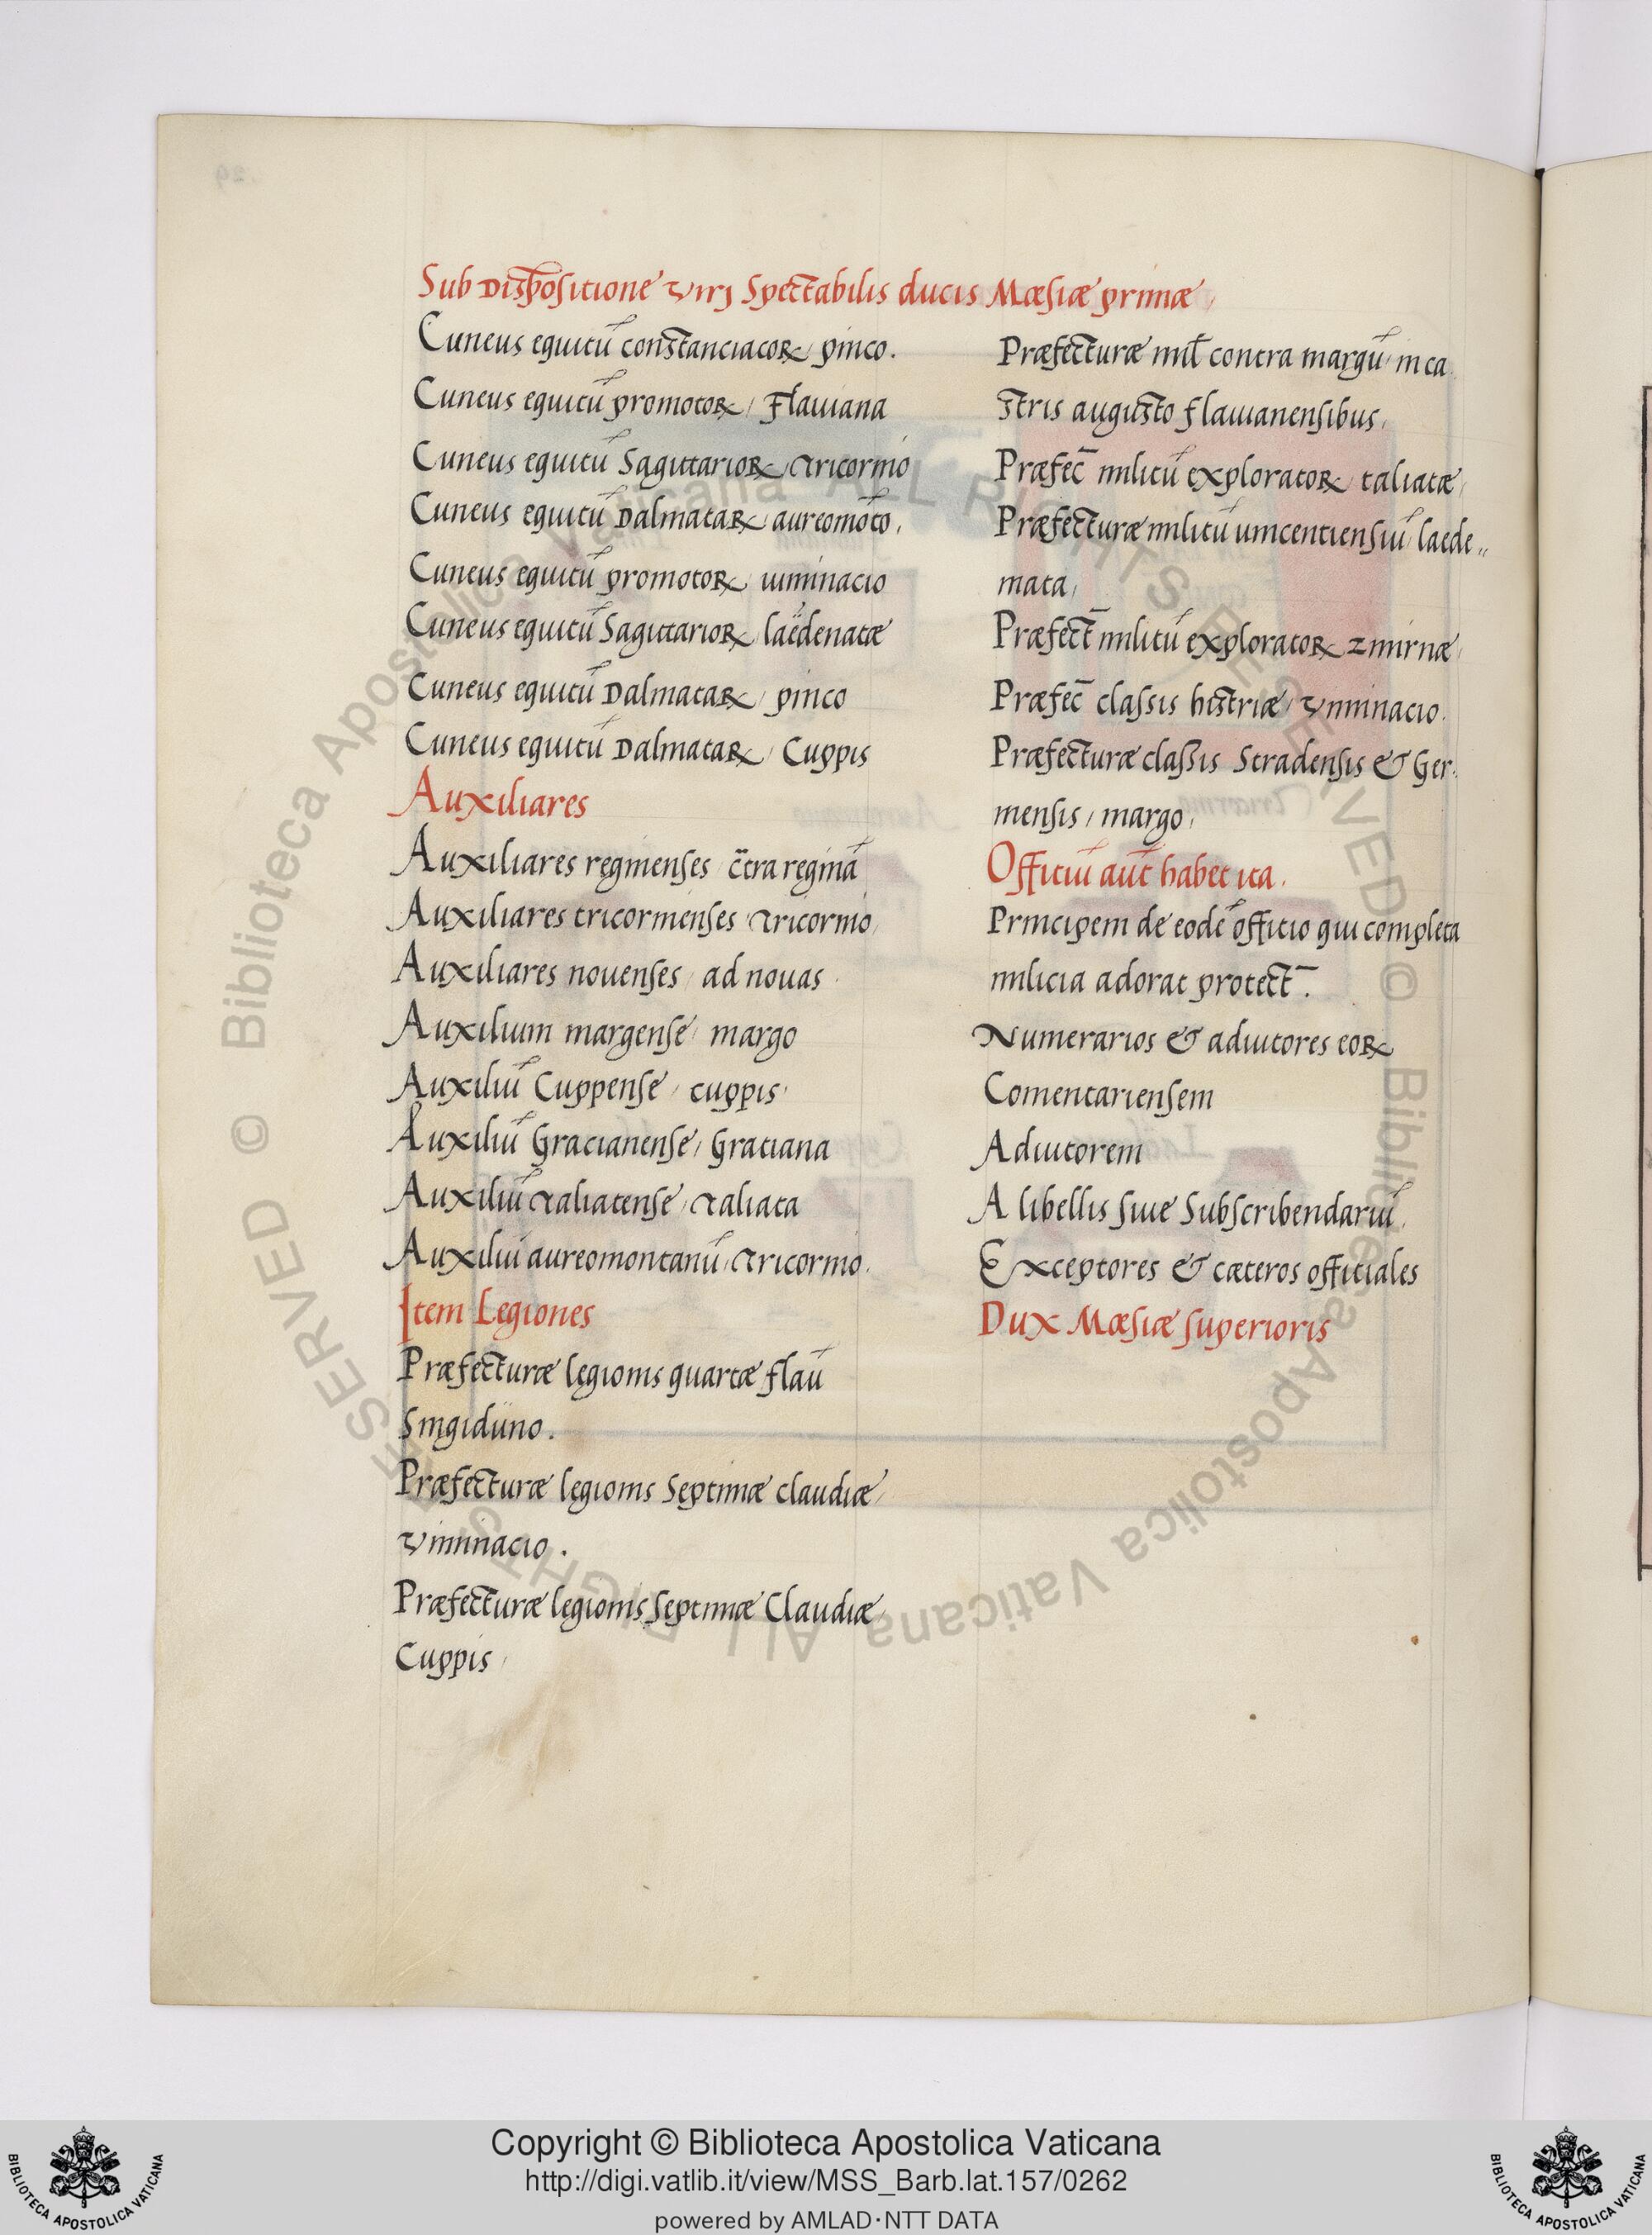 Sub Dispositione Virj Spectabilis ducis Mæsiæ primæ,
Cuneus equitū constanciacoꝝ, pinco.
Cuneus equitū promotoꝝ, Flauiana
Cuneus equitū Sagittarioꝝ, Tricornio
Cuneus equitū Dalmataꝝ, aureomōto,
Cuneus equitū promotoꝝ, uiminacio
Cuneus equitū Sagittarioꝝ, laëdenatæ
Cuneus equitū Dalmataꝝ, pinco
Cuneus equitū Dalmataꝝ, Cuppis
Auxiliares
Auxiliares reginenses, c̄tra reginā
Auxiliares tricornienses, Tricornio,
Auxiliares nouenses, ad nouas
Auxilium margense, margo
Auxiliū Cuppense, cuppis,
Auxiliū Gracianense, Gratiana
Auxiliū Taliatense, Taliata
Auxiliū aureomontanū, Tricornio.
Item Legiones
Præfecturæ legionis quartæ flaū
Singidūno.
Præfecturæ legionis Septimæ claudiæ,
Viminacio.
Præfecturæ legionis Septimæ Claudiæ,
Cuppis,
Præfecturæ mil̄ contra margū, in ca
stris augusto flauianensibus,
Præfec̄ militū exploratoꝝ, taliatæ,
Præfecturæ militū uincentiensiū, laede„
mata,
Præfect̄ militū exploratoꝝ zmirnæ,
Præfec̄ classis histriæ, Viminacio.
Præfecturæ classis Stradensis & Ger
mensis, margo,
Offitiū aūt habet ita.
Principem de eodē offitio qui completa
milicia adorat protect̄.
Numerarios & adiutores eoꝝ
Comentariensem
Adiutorem
A libellis siue Subscribendariū,
Exceptores & cæteros offitiales
Dux Mæsiæ superioris
© Biblioteca Apostolica Vaticana ALL RIGHTS RESERVED © Biblioteca Apostolica Vaticana ALL RIGHTS RESERVED
Copyright © Biblioteca Apostolica Vaticana
http://digi.vatlib.it/view/MSS_Barb.lat.157/0262
powered by AMLAD·NTT DATA
BIBLIOTECA APOSTOLICA VATICANA
BIBLIOTECA APOSTOLICA VATICANA